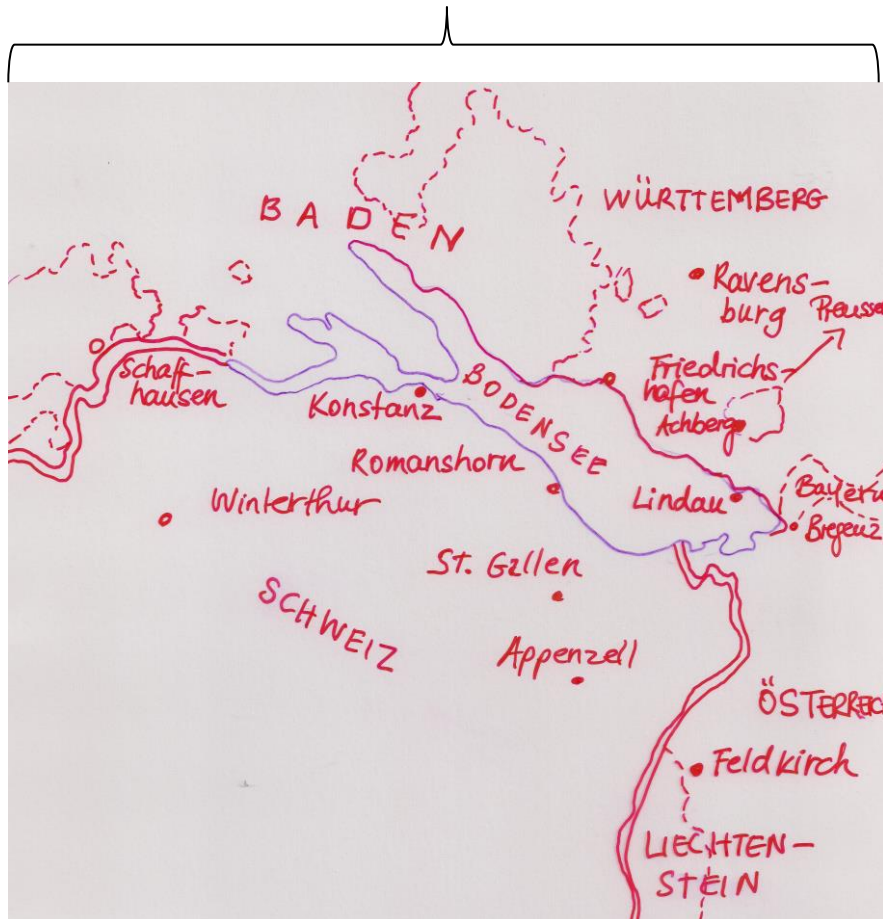 BADEN
WÜRTTEMBERG
Ravens-
burg
Preusse
Schaff-
hausen
Friedrichs-
hafen
Konstanz
BODENSEE
Achberg
Romanshorn
Winterthur
Lindau
Bayern
Bregenz
St. Gallen
SCHWEIZ
Appenzell
ÖSTERREIC
Feldkirch
LIECHTEN-
STEIN